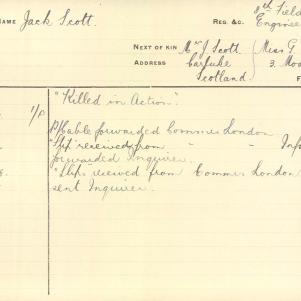 NAME Jack Scott. REG. &c. 8th Field
Enginee
NEXT OF KIN Mrs J. Scott. Miss G
ADDRESS Carluke 3. Moo
Scotland
F
1/0 "Killed in Action".
Cable forwarded Commrs London
"Slip" received from " " Info
forwarded Inquirer.
"Slips viewed from Commrs London
sent Inquirer.